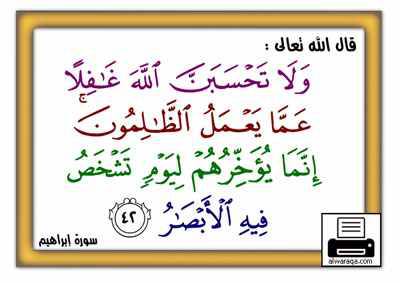 قال الله تعالى :
وَلَا تَحْسَبَنَّ ٱللَّهَ غَـٰفِلًا
عَمَّا يَعْمَلُ ٱلظَّـٰلِمُونَ ۚ
إِنَّمَا يُؤَخِّرُهُمْ لِيَوْمٍ تَشْخَصُ
فِيهِ ٱلْأَبْصَـٰرُ ٤٢
سورة إبراهيم
alwaraqa.com